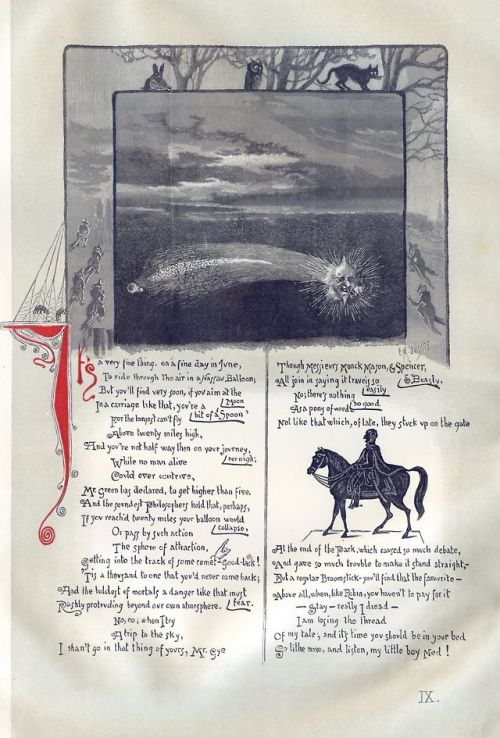 It's a very fine thing, on a fine day in June,
To ride through the air in a Nassau Balloon;
But you'll find very soon, if you aim at the Moon
In a carriage like that, you're a bit of a "Spoon"
For the longest can't fly
Above twenty miles high,
And you're not half way then on your journey, nor nigh;
While no man alive
Could ever contrive,
Mr Green has declared, to get higher than five.
And the soundest Philosophers hold that, perhaps,
If you reach'd twenty miles your balloon would collapse,
Or pass by such action
The sphere of attraction,
Getting into the track of some comet - Good-lack!
'Tis a thousand to one that you'd never come back;
And the boldest of mortals a danger like that must fear,
Rashly protruding beyond our own atmosphere.
No, no; when I try
A trip to the sky,
I shan't go in that thing of yours, Mr. Gye
Though Messieurs Monck Mason, & Spencer, & Beazly,
All join in saying it travels so easily
No; there's nothing so good
As a pony of wood
Not like that which, of late, they stuck up on the gate
At the end of the Park, which caused so much debate,
And gave so much trouble to make it stand straight,-
But a regular Broomstick- you'll find that the favourite -
Above all, when, like Robin, you haven't to pay for it
- Stay - really I dread -
I am losing the thread
Of my tale; and it's time you should be in your bed
So lithe now, and listen, my little boy Ned!
IX.